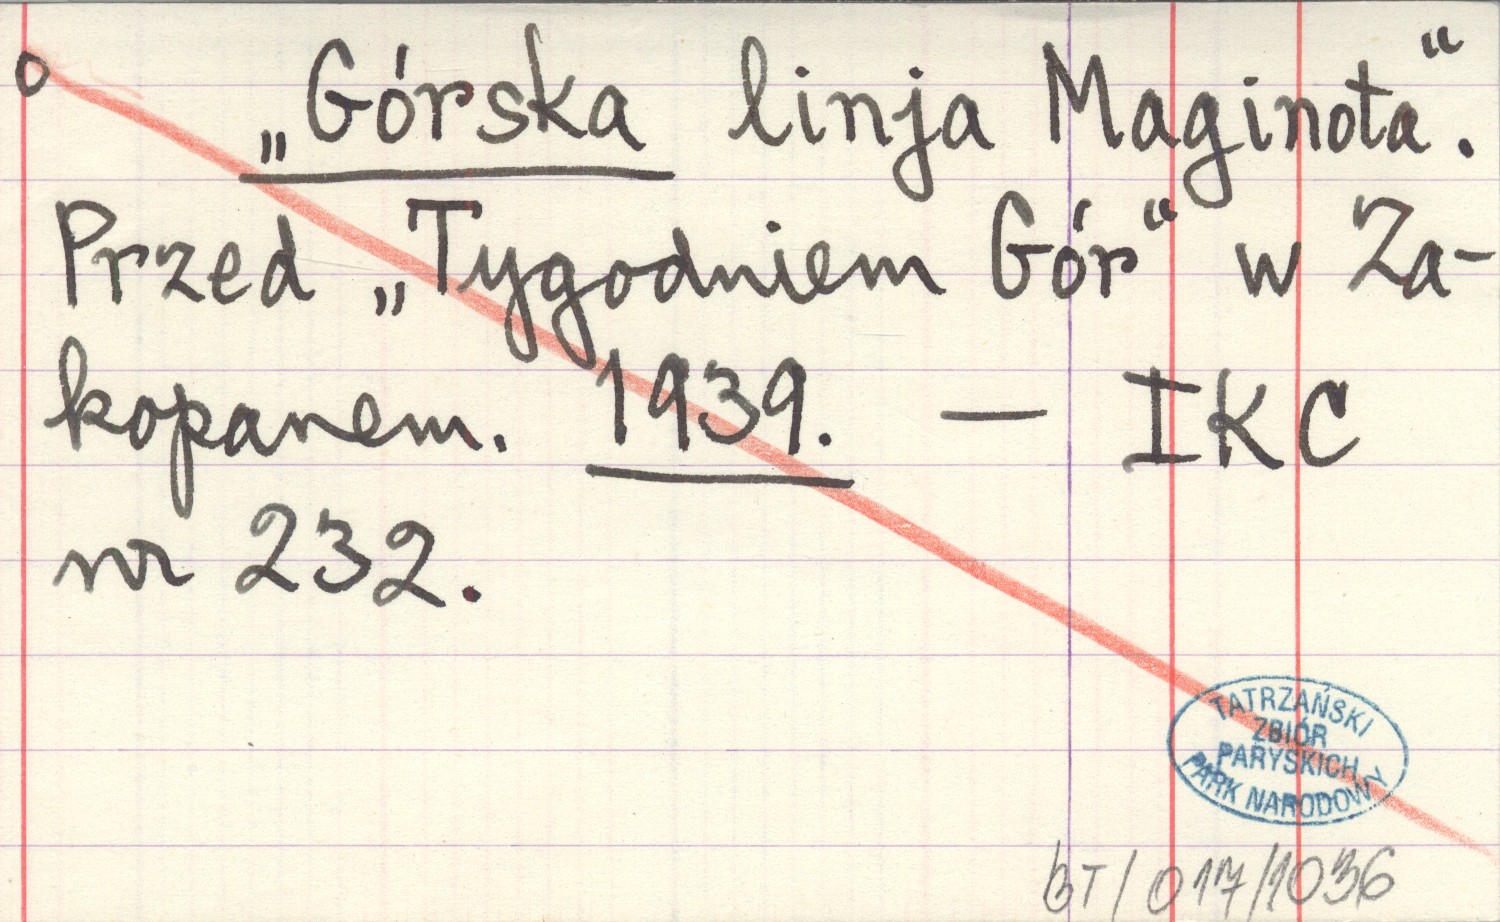 o „Górska linja Maginota“.
Przed „Tygodniem Gór“ w Za-
kopanem. 1939. — IKC
nr 232.
TATRZAŃSKI
ZBIÓR
PARYSKICH
PARK NARODOWY
BT/017/1036